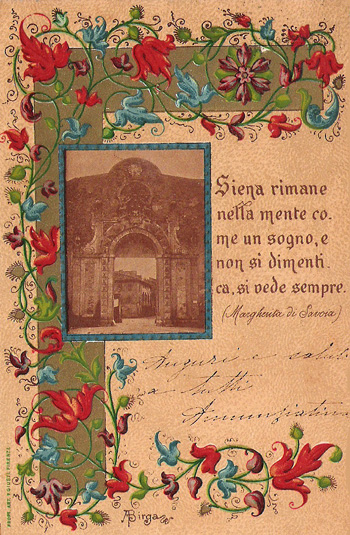 Siena rimane
nella mente co.
me un sogno, e
non si dimenti.
ca, si vede sempre.
(Margherita di Savoia)
Auguri e saluti
a tutti
Annunziatina
ABirga